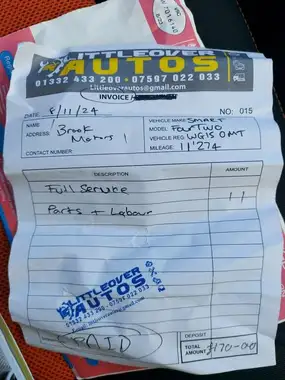 LITTLEOVER
AUTOS
01332 433 200 - 07597 022 033
Littleoverautos@gmail.com
INVOICE
DATE: 8/11/24
NO: 015
NAME:
ADDRESS: Brook
Motor 1
CONTACT NUMBER:
VEHICLE MAKE: SMART
MODEL FOURTWO
VEHICLE REG: WG15 OMT
MILEAGE: 11'274
DESCRIPTION
AMOUNT
Full Service
11
Parts + Labour
LITTLEOVER
AUTOS
01332 433 200 - 07597 022 033
PAID
DEPOSIT
TOTAL
AMOUNT £170-00